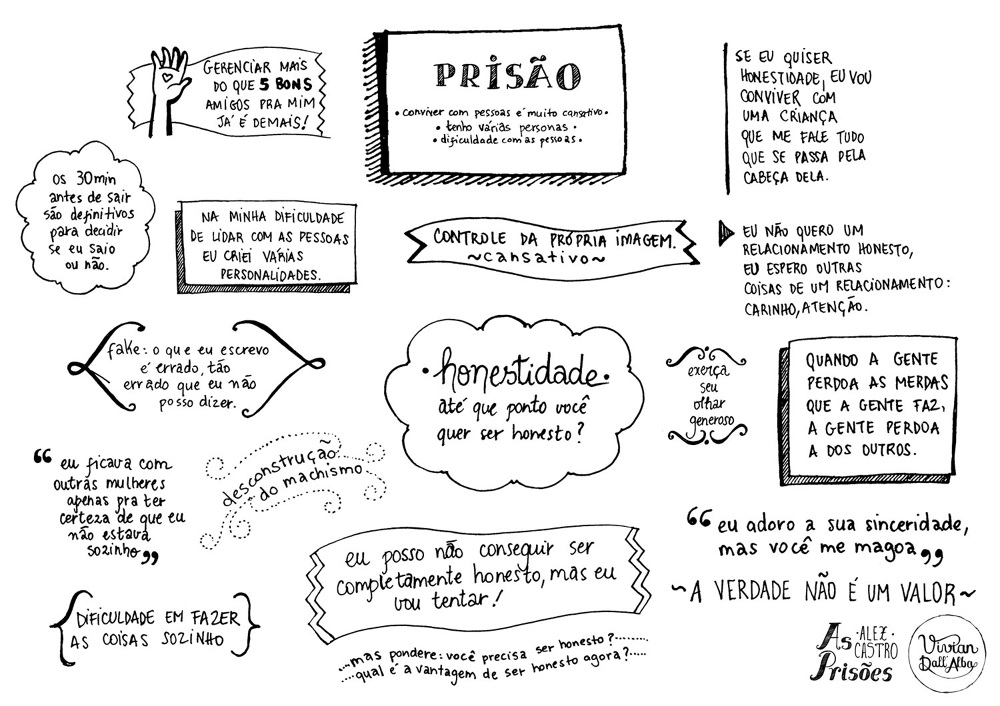 GERENCIAR MAIS
DO QUE 5 BONS
AMIGOS PRA MIM
JÁ É DEMAIS!
PRISÃO
• conviver com pessoas é muito cansativo •
• tenho várias personas •
• dificuldade com as pessoas •
SE EU QUISER
HONESTIDADE, EU VOU
CONVIVER COM
UMA CRIANÇA
QUE ME FALE TUDO
QUE SE PASSA PELA
CABEÇA DELA.
os 30min
antes de sair
são definitivos
para decidir
se eu saio
ou não.
NA MINHA DIFICULDADE
DE LIDAR COM AS PESSOAS
EU CRIEI VÁRIAS
PERSONALIDADES.
CONTROLE DA PRÓPRIA IMAGEM.
~cansativo~
EU NÃO QUERO UM
RELACIONAMENTO HONESTO,
EU ESPERO OUTRAS
COISAS DE UM RELACIONAMENTO:
CARINHO, ATENÇÃO.
fake: o que eu escrevo
é errado, tão
errado que eu não
posso dizer.
• honestidade •
até que ponto você
quer ser honesto?
exerça
seu
olhar
generoso
QUANDO A GENTE
PERDOA AS MERDAS
QUE A GENTE FAZ,
A GENTE PERDOA
A DOS OUTROS.
“ eu ficava com
outras mulheres
apenas pra ter
certeza de que eu
não estava
sozinho ”
desconstrução
do machismo
“ eu adoro a sua sinceridade,
mas você me magoa ”
eu posso não conseguir ser
completamente honesto, mas eu
vou tentar!
~A VERDADE NÃO É UM VALOR~
{ DIFICULDADE EM FAZER
AS COISAS SOZINHO }
...mas pondere: você precisa ser honesto?...
...qual é a vantagem de ser honesto agora?...
As
Prisões
• ALEX •
CASTRO
Vivian
Dall'Alba